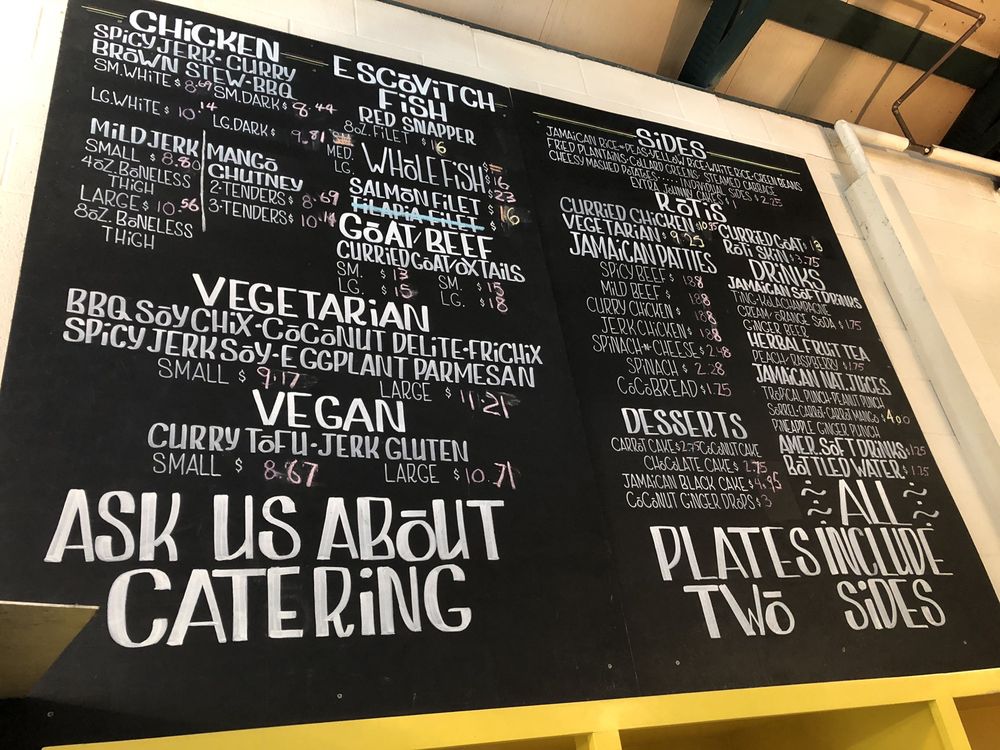 CHICKEN
SPICY JERK-CURRY
BROWN STEW-BBQ
SM.WHITE $8.69 SM.DARK $ 8.44
LG.WHITE $ 10.14 LG.DARK $ 9.81
MILD JERK
SMALL $ 8.80
4OZ. BONELESS
THIGH
LARGE $ 10.56
8OZ. BONELESS
THIGH
MANGO
CHUTNEY
2-TENDERS $ 8.69
3-TENDERS $ 10.14
ESCOVITCH
FISH
RED SNAPPER
8OZ. FILET $16
MED.
LG. WHOLE FISH $16
$23
SALMON FILET $16
TILAPIA FILET $
GOAT/BEEF
CURRIED GOAT/OXTAILS
SM. $ 13 SM. $ 15
LG. $ 15 LG. $ 18
VEGETARIAN
BBQ SOY CHIX-COCONUT DELITE-FRICHIX
SPICY JERK SOY-EGGPLANT PARMESAN
SMALL $ 9.17 LARGE $ 11.21
VEGAN
CURRY TOFU-JERK GLUTEN
SMALL $ 8.67 LARGE $ 10.71
ASK US ABOUT
CATERING
SIDES
JAMAICAN RICE-PEAS-YELLOW RICE-WHITE RICE-GREEN BEANS
FRIED PLANTAINS-COLLARD GREENS-STEAMED CABBAGE
CHEESY MASHED POTATOES - INDIVIDUAL SIDES $2.25
EXTRA JOHNNY CAKES $1
ROTIS
CURRIED CHICKEN $10.35 CURRIED GOAT $13
VEGETARIAN $ 9.25 ROTI SKIN $3.75
JAMAICAN PATTIES
SPICY BEEF $ 1.88
MILD BEEF $ 1.88
CURRY CHICKEN $ 1.88
JERK CHICKEN $ 1.88
SPINACH + CHEESE $ 2.48
SPINACH $ 2.28
COCOBREAD $1.75
DRINKS
JAMAICAN SOFT DRINKS
TING-KOLA CHAMPAGNE
CREAM-ORANGE SODA $ 1.75
GINGER BEER
HERBAL FRUIT TEA
PEACH-RASPBERRY $1.75
JAMAICAN NAT. JUICES
TROPICAL PUNCH-PEANUT PUNCH
SORREL-CARROT-CARROT MANGO $4.00
PINEAPPLE GINGER PUNCH
AMER. SOFT DRINKS $1.25
BOTTLED WATER $ 1.25
DESSERTS
CARROT CAKE $2.75 COCONUT CAKE
CHOCOLATE CAKE $ 2.75
JAMAICAN BLACK CAKE $4.95
COCONUT GINGER DROPS $3
ALL
PLATES INCLUDE
TWO SIDES